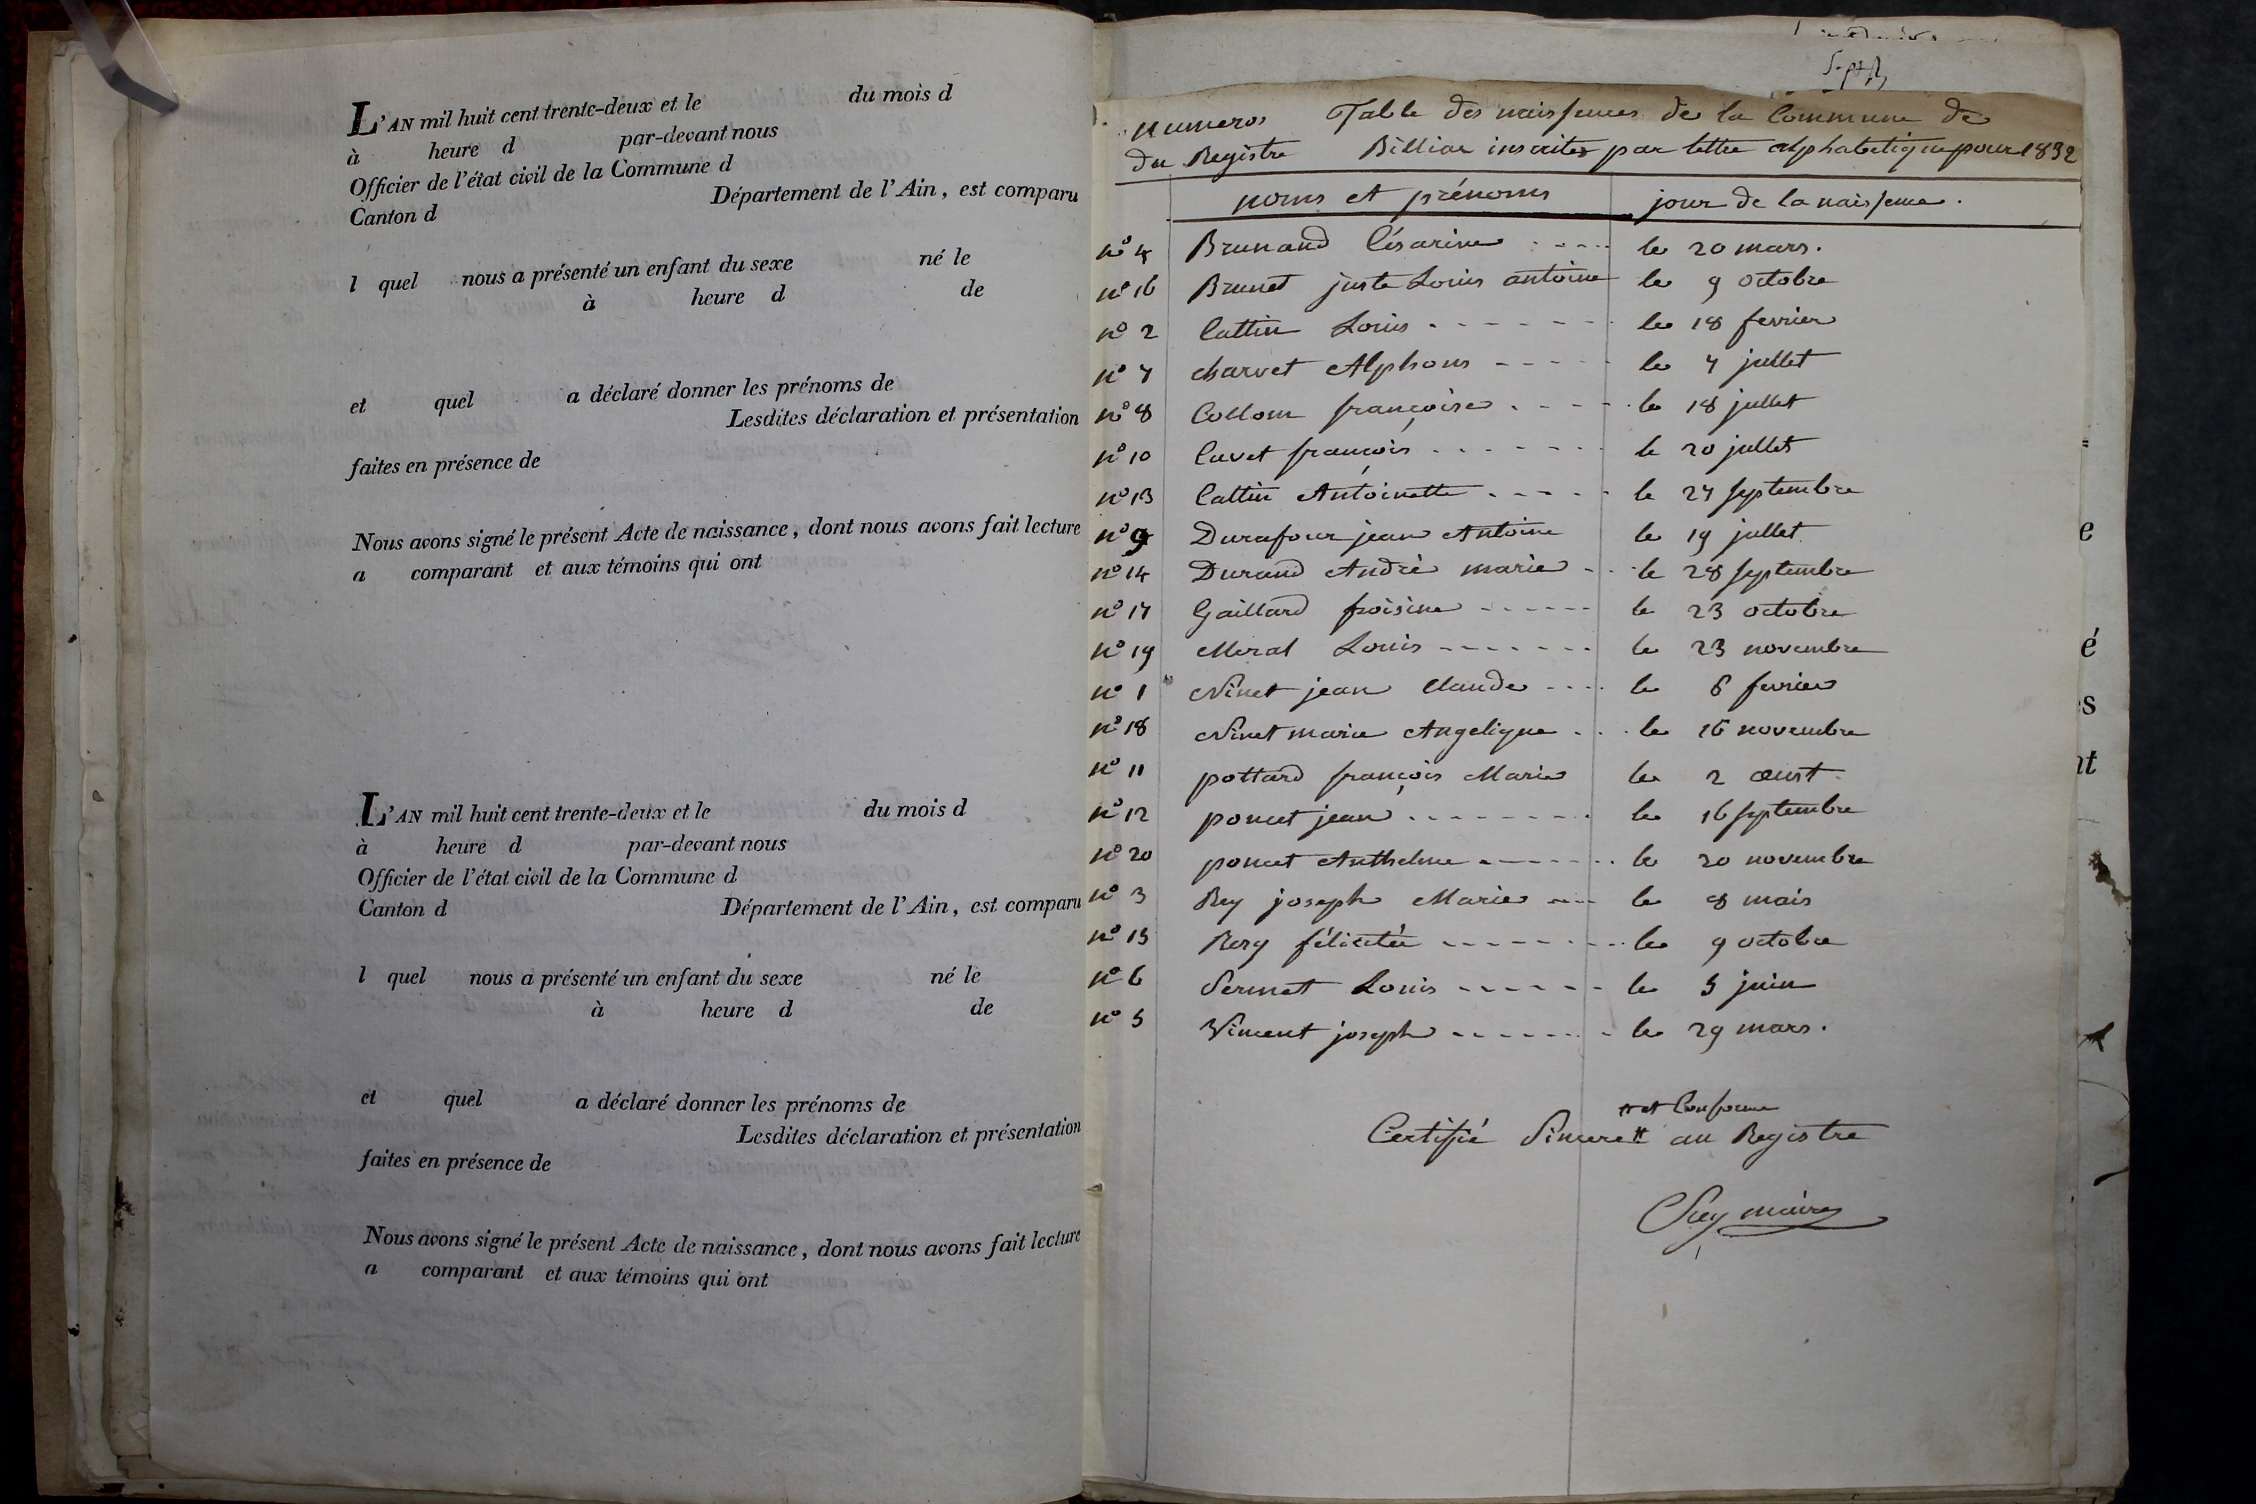 L'AN mil huit cent trente-deux et le du mois d
à heure d par-devant nous
Officier de l'état civil de la Commune d
Canton d Département de l'Ain, est comparu
l quel nous a présenté un enfant du sexe né le
à heure d de
et quel a déclaré donner les prénoms de
Lesdites déclaration et présentation
faites en présence de
Nous avons signé le présent Acte de naissance, dont nous avons fait lecture
a comparant et aux témoins qui ont
L'AN mil huit cent trente-deux et le du mois d
à heure d par-devant nous
Officier de l'état civil de la Commune d
Canton d Département de l'Ain, est comparu
l quel nous a présenté un enfant du sexe né le
à heure d de
et quel a déclaré donner les prénoms de
Lesdites déclaration et présentation
faites en présence de
Nous avons signé le présent Acte de naissance, dont nous avons fait lecture
a comparant et aux témoins qui ont
numeros Table des naissences de la Commune de
du Registre Billiat inscrites par lettre alphabetique pour 1832
noms et prénoms jour de la naissence.
n° 4 Brunand Césarine le 20 mars.
n° 16 Brunet juste Louis antoine le 9 octobre
n° 2 Cattin Louis le 18 fevrier
n° 7 charvet Alphons le 7 jullet
n° 8 Collom françoise le 18 jullet
n° 10 Cavet françois le 20 jullet
n° 13 Cattin Antoinette le 27 septembre
n° 9 Durafour jean Antoine le 19 jullet
n° 14 Durand Andrè marie le 28 septembre
n° 17 Gaillard froisine le 23 octobre
n° 19 Meral Louis le 23 novembre
n° 1 Ninet jean Claude le 6 fevrier
n° 18 Ninet marie Angelique le 16 novembre
n° 11 pottard françois Marie le 2 aoust
n° 12 poncet jean le 16 septembre
n° 20 poncet Anthelme le 20 novembre
n° 3 Rey joseph Marie le 8 mars
n° 15 Rey félicitée le 9 octobre
n° 6 Sermet Louis le 5 juin
n° 5 Vincent joseph le 29 mars.
et Conforme
Certifié Sincere au Registre
maire